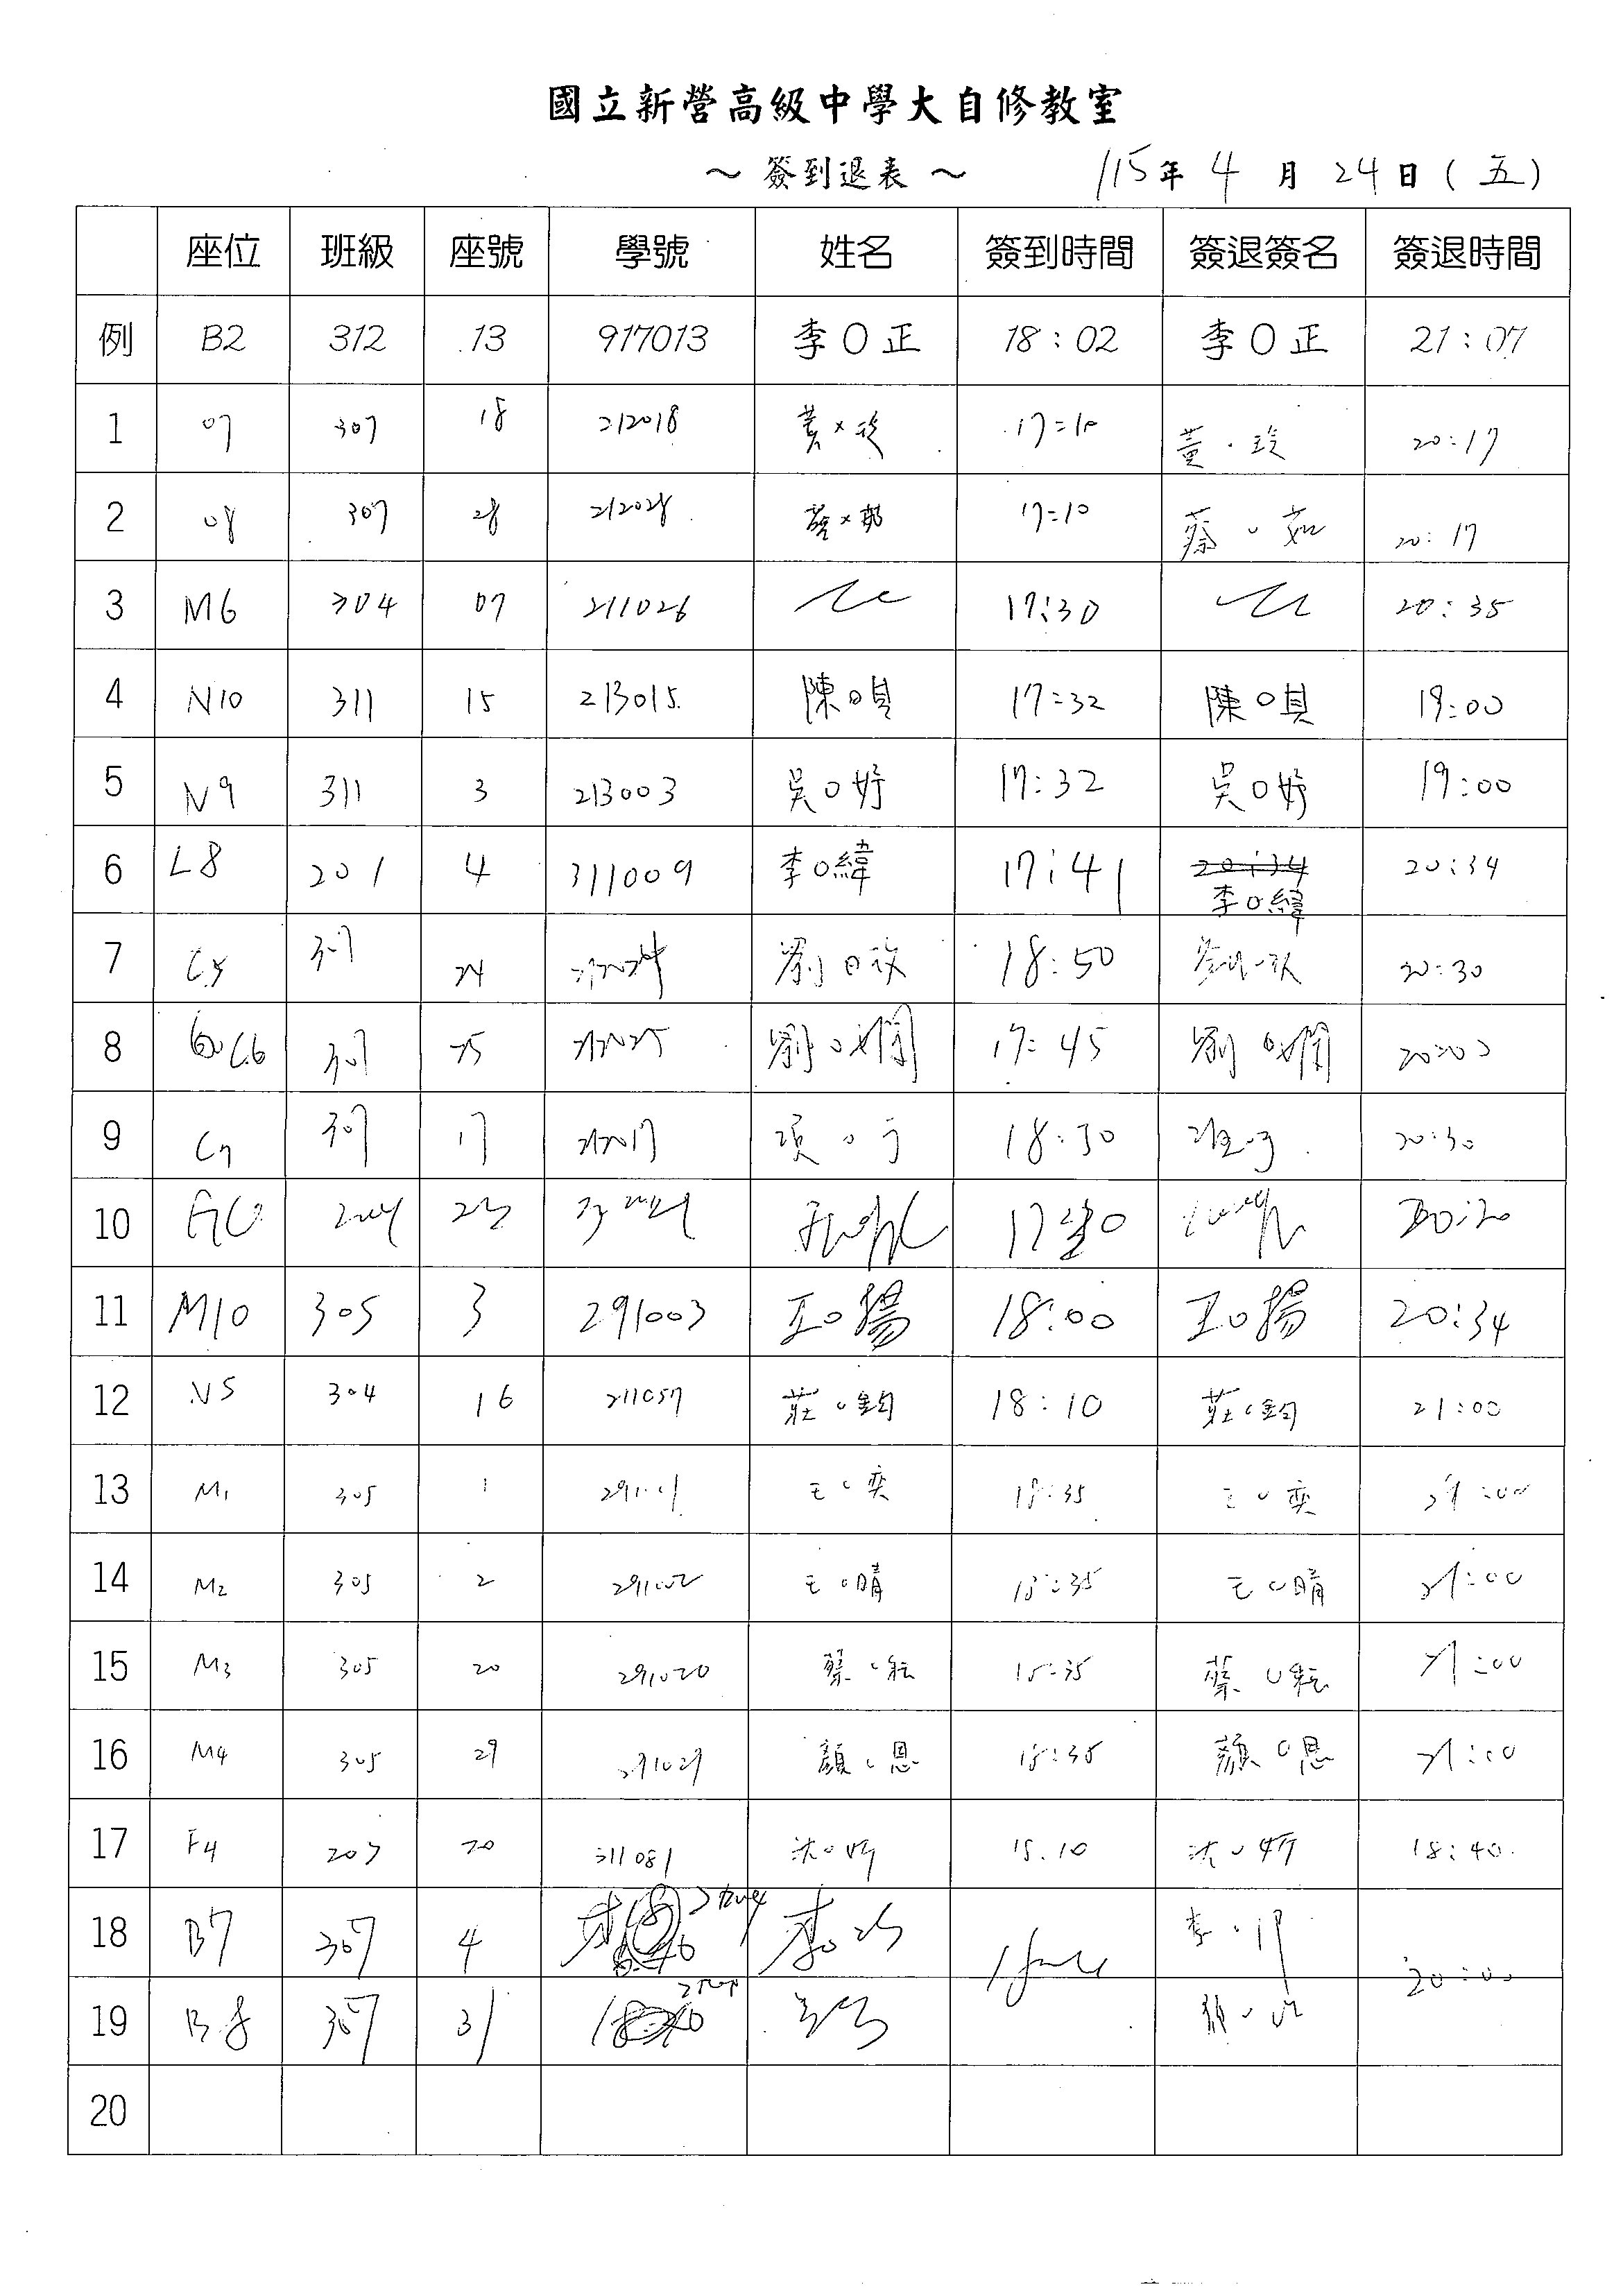 國立新營高級中學大自修教室
～ 簽到退表 ～ 115年 4 月 24日 (五)
座位 班級 座號 學號 姓名 簽到時間 簽退簽名 簽退時間
例 B2 312 13 917013 李○正 18:02 李○正 21:07
1 07 307 18 212018 17:10 20:17
2 08 307 28 212028 17:10 蔡○茹 20:17
3 M6 304 07 211026 17:30 20:35
4 N10 311 15 213015 陳○唄 17:32 陳○唄 19:00
5 N9 311 3 213003 吳○妤 17:32 吳○妤 19:00
6 L8 201 4 311009 李○緯 17:41 20:34 李○緯 20:34
7 307 24 212024 劉 18:50 20:30
8 C6 307 25 212025 劉○嫻 17:45 劉○嫻 20:20
9 C7 307 17 212017 18:30 20:30
10 204 23
11 M10 305 3 291003 王○揚 18:00 王○揚 20:34
12 N5 304 16 211057 莊○鈞 18:10 莊○鈞 21:00
13 M1 305 1 291001 王○奕 18:35 王○奕 21:00
14 M2 305 2 291002 王○晴 18:35 王○晴 21:00
15 M3 305 20 291020 蔡○耘 18:35 蔡○耘 21:00
16 M4 305 29 291029 顏○恩 18:35 顏○恩 21:00
17 F4 207 20 311081 18:10 18:40
18 B7 307 4 李 20:00
19 B8 307 31
20